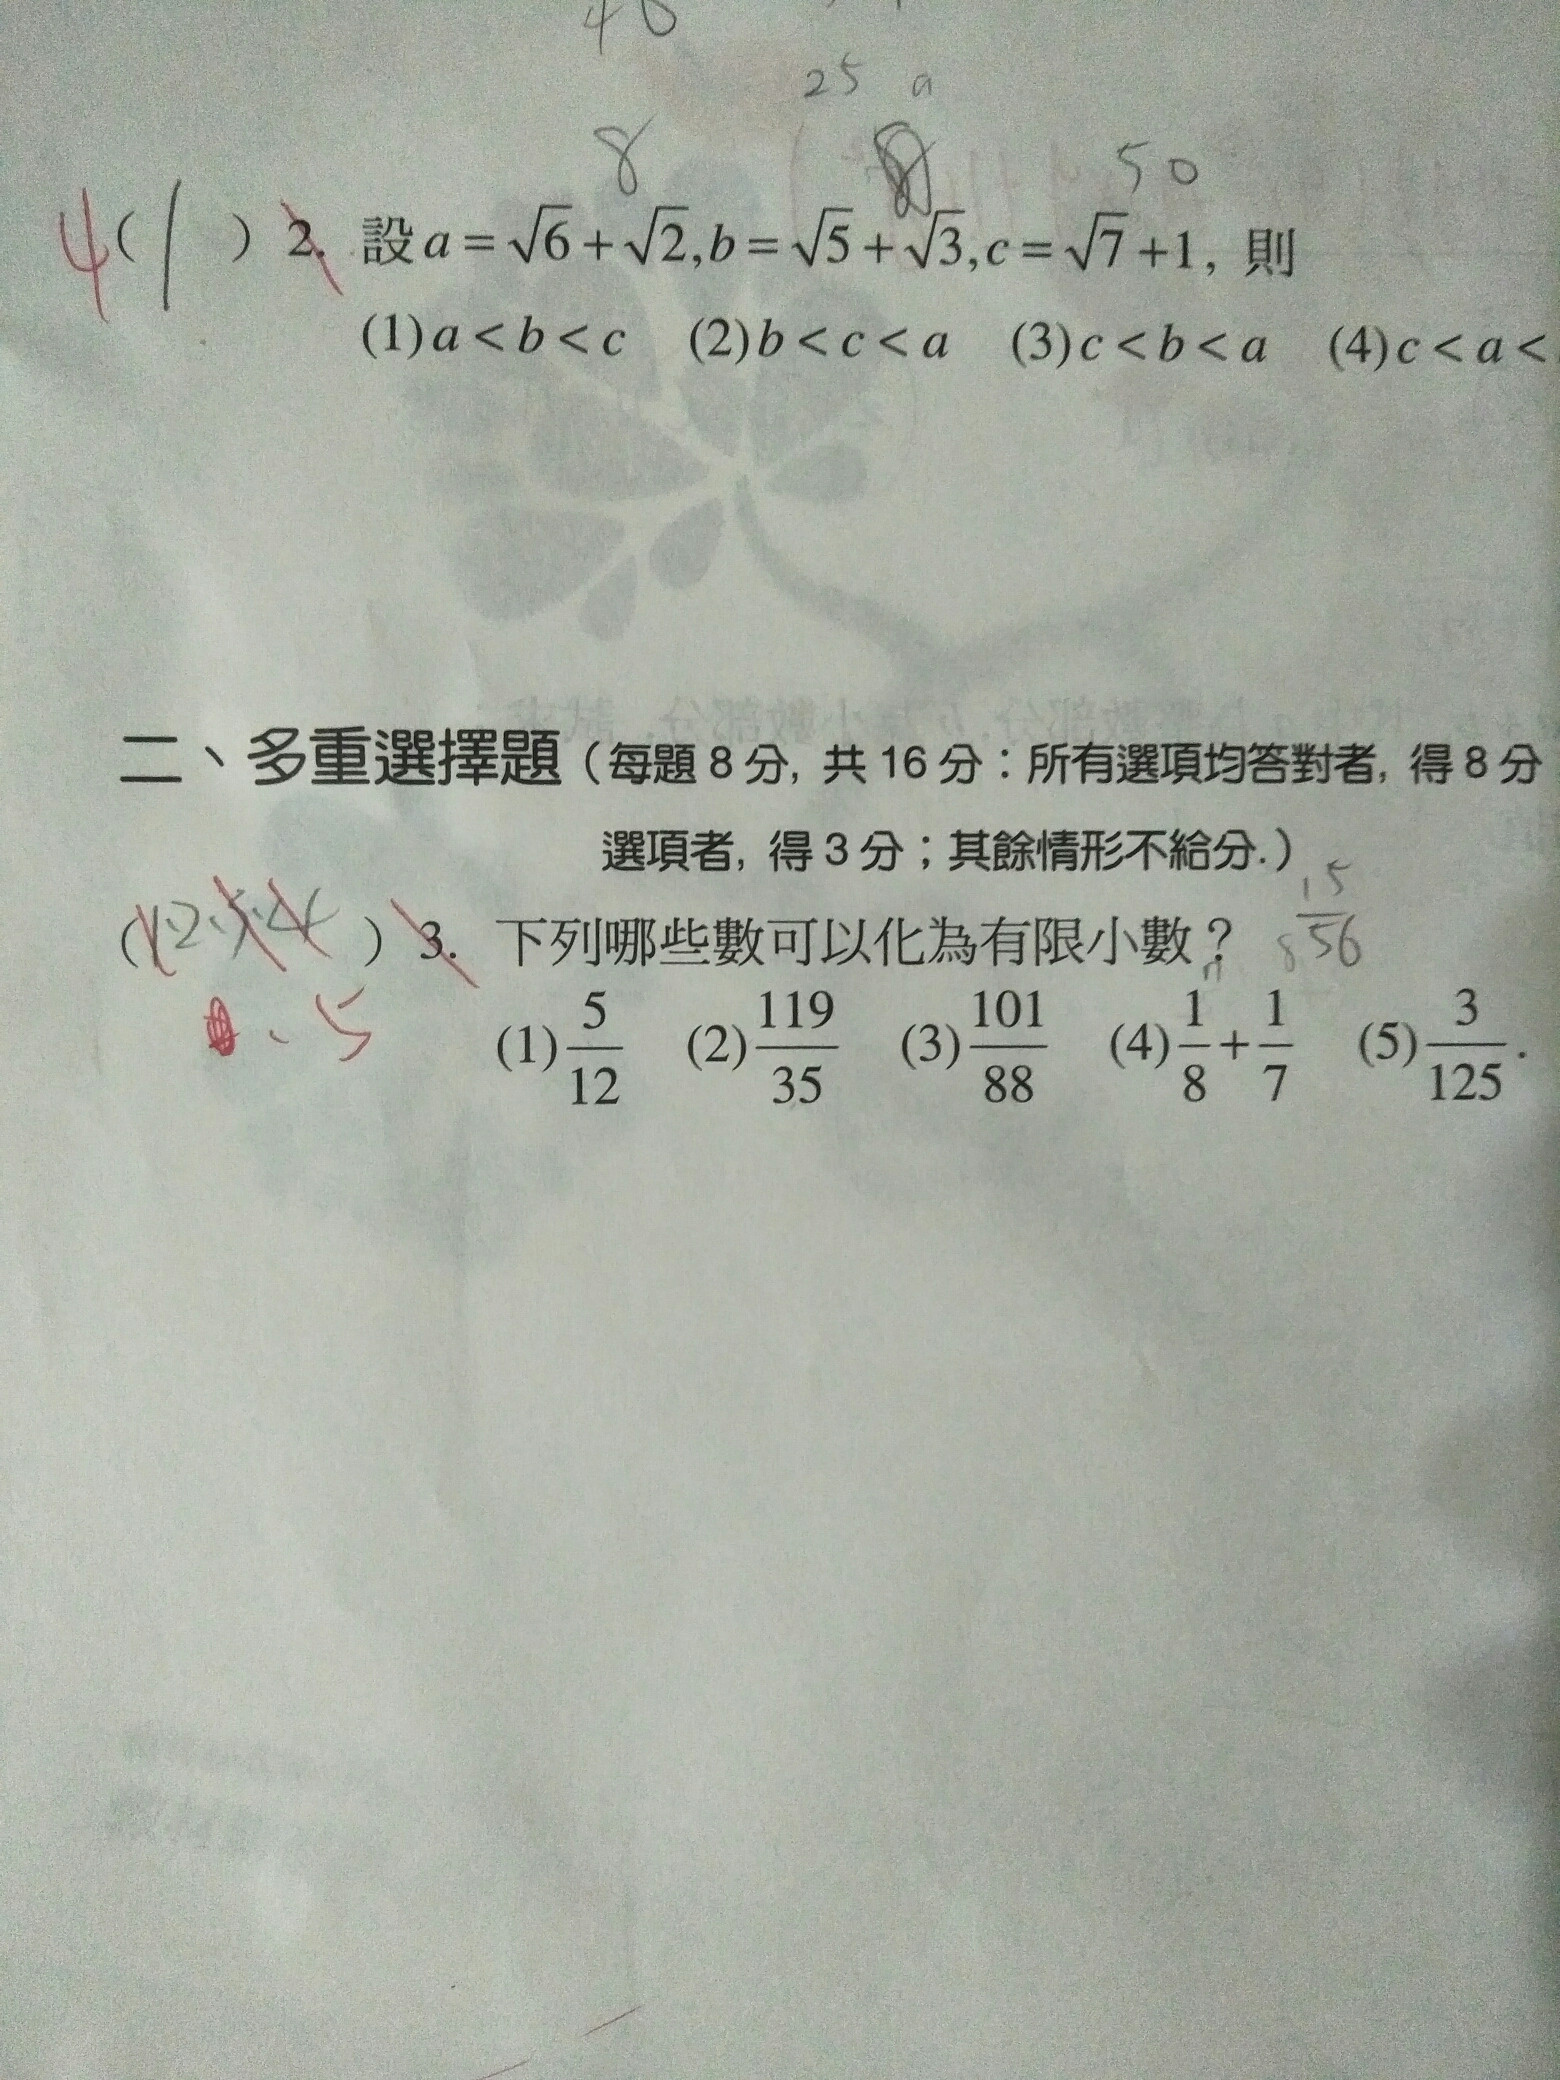 25 a
8 50
4 ( 1 ) 2. 設 a = √6 + √2, b = √5 + √3, c = √7 + 1, 則
(1) a < b < c (2) b < c < a (3) c < b < a (4) c < a <
二、多重選擇題（每題 8 分, 共 16 分：所有選項均答對者, 得 8 分
選項者, 得 3 分；其餘情形不給分.）
( 1.2.3.4 ) 3. 下列哪些數可以化為有限小數？ 15/56
、5 (1) 5/12 (2) 119/35 (3) 101/88 (4) 1/8 + 1/7 (5) 3/125 .